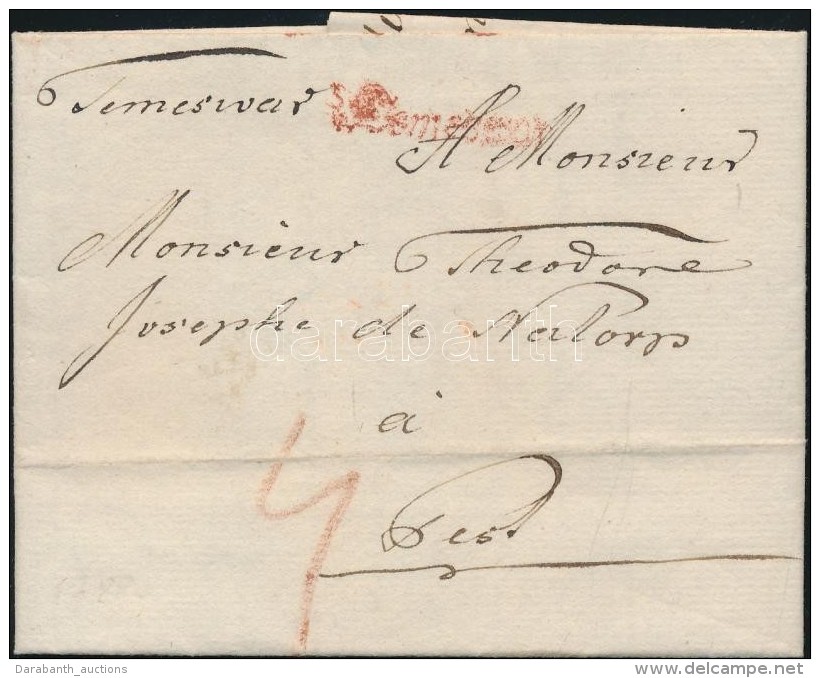 Temeswar
A Monsieur
Monsieur Theodore
Josephe de Natorp
darabanth
à
Pest
Darabanth_auctions
www.delcampe.net